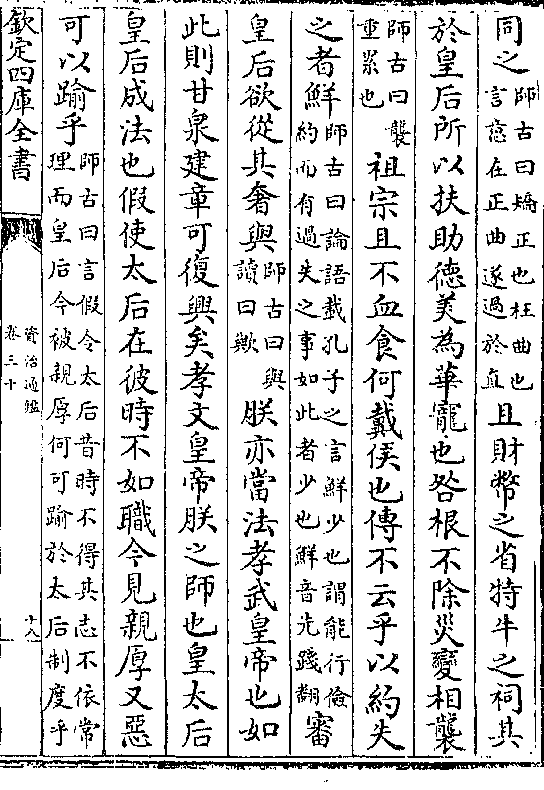 同之師古曰矯正也枉曲也言意在正曲遂過於直且財幣之省特牛之祠其
於皇后所以扶助德美為華寵也咎根不除災變相襲
師古曰襲重累也祖宗且不血食何戴侯也傳不云乎以約失
之者鮮師古曰論語載孔子之言鮮少也謂能行儉約而有過失之事如此者少也鮮音先踐翻審
皇后欲從其奢與師古曰與讀曰歟朕亦當法孝武皇帝也如
此則甘泉建章可復興矣孝文皇帝朕之師也皇太后
皇后成法也假使太后在彼時不如職今見親厚又惡
可以踰乎師古曰言假令太后昔時不得其志不依常理而皇后今被親厚何可踰於太后制度乎
欽定四庫全書
資治通鑑
卷三十
十八